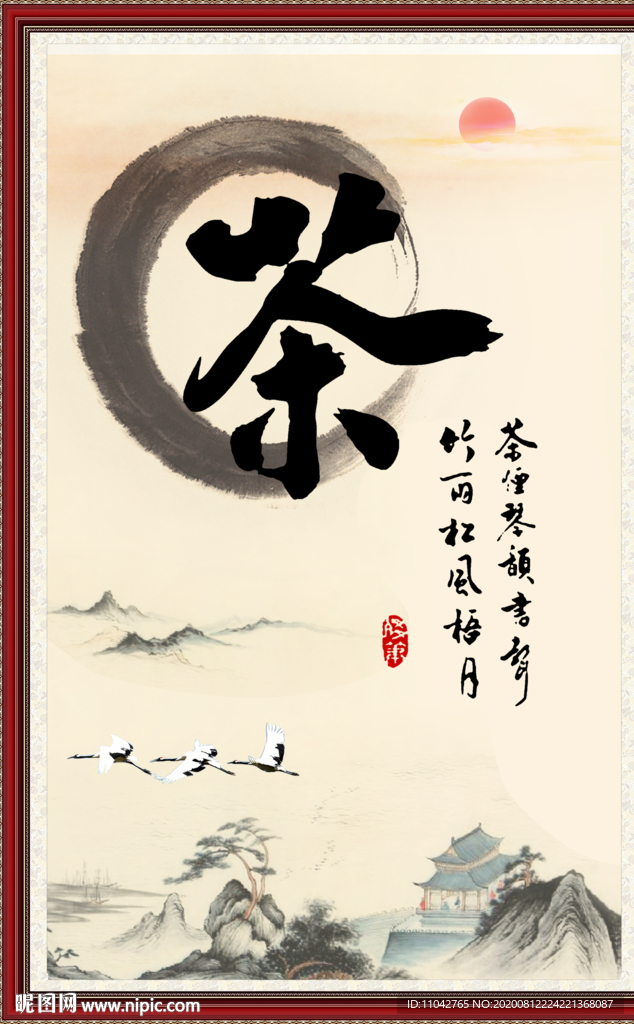 茶
茶煙琴韻書聲
竹雨松風梧月
昵图网 www.nipic.com
ID:11042765 NO:20200812224221368087